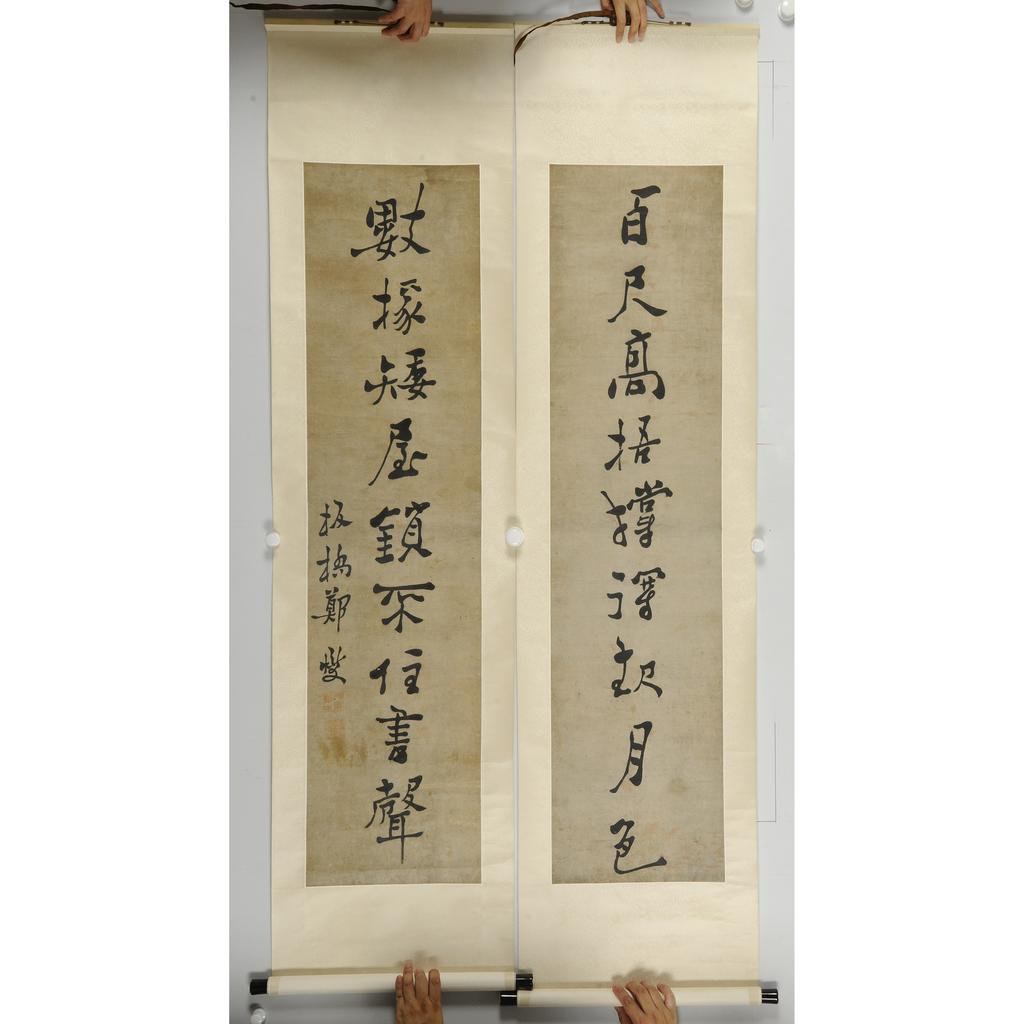 百尺高梧撑得起月色
數椽矮屋鎖不住書聲
板橋鄭燮